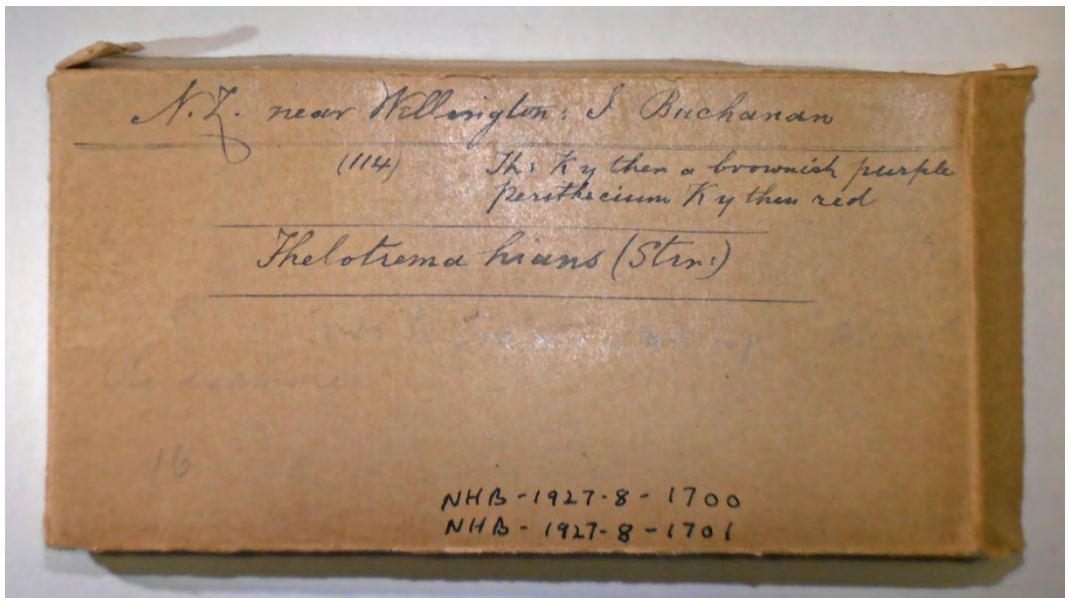 N.Z. near Wellington: J Buchanan
(114) Th: K y then a brownish purple
perithecium K y then red
Thelotrema hians (Strn:)
16
NHB-1927-8-1700
NHB-1927-8-1701